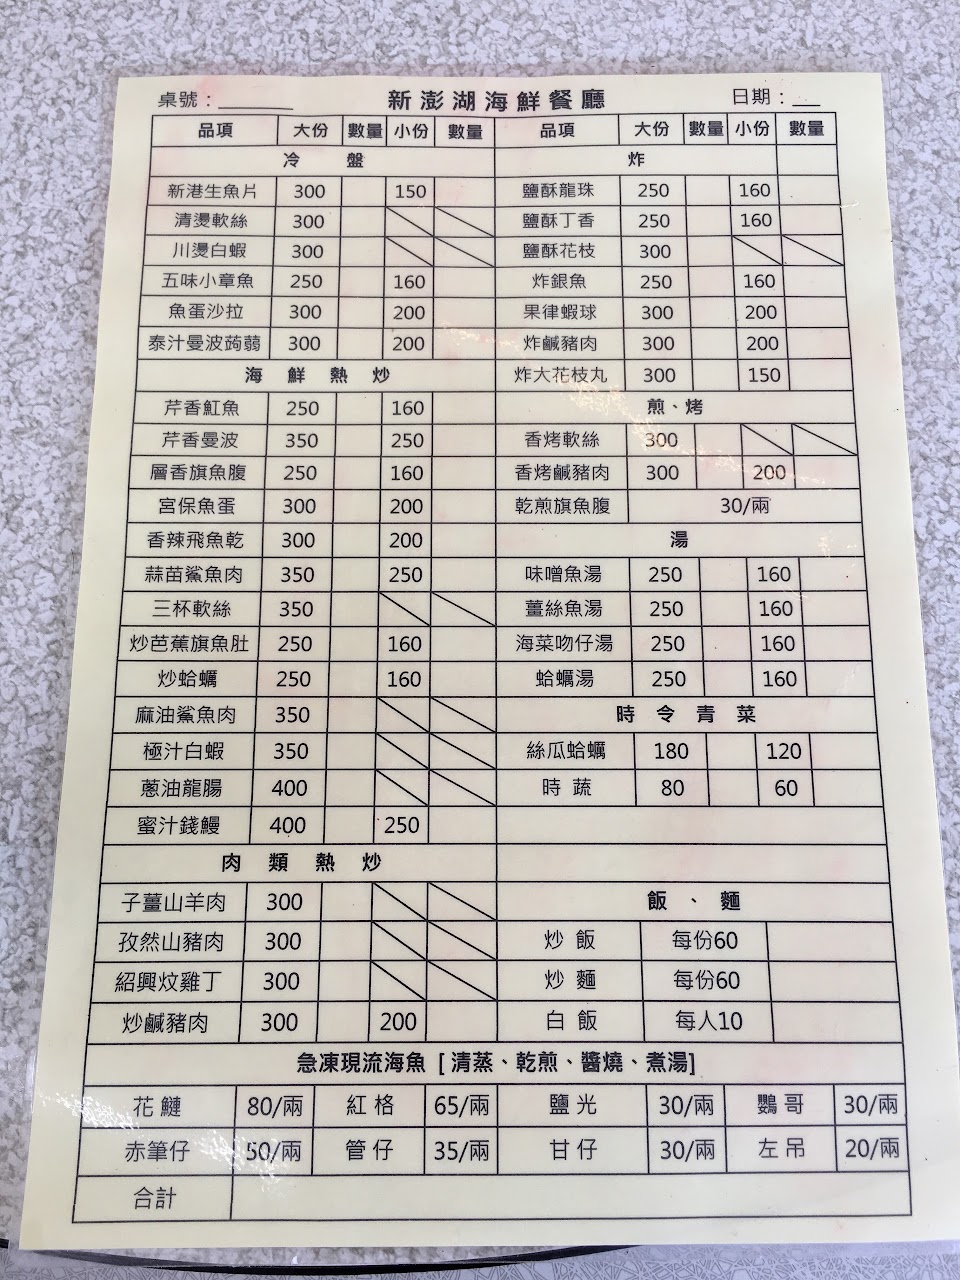 桌號：______ 新澎湖海鮮餐廳 日期：__
品項 大份 數量 小份 數量 品項 大份 數量 小份 數量
冷盤 炸
新港生魚片 300 150 鹽酥龍珠 250 160
清燙軟絲 300 鹽酥丁香 250 160
川燙白蝦 300 鹽酥花枝 300
五味小章魚 250 160 炸銀魚 250 160
魚蛋沙拉 300 200 果律蝦球 300 200
泰汁曼波蒟蒻 300 200 炸鹹豬肉 300 200
海鮮熱炒 炸大花枝丸 300 150
芹香魟魚 250 160 煎、烤
芹香曼波 350 250 香烤軟絲 300
層香旗魚腹 250 160 香烤鹹豬肉 300 200
宮保魚蛋 300 200 乾煎旗魚腹 30/兩
香辣飛魚乾 300 200 湯
蒜苗鯊魚肉 350 250 味噌魚湯 250 160
三杯軟絲 350 薑絲魚湯 250 160
炒芭蕉旗魚肚 250 160 海菜吻仔湯 250 160
炒蛤蠣 250 160 蛤蠣湯 250 160
麻油鯊魚肉 350 時令青菜
極汁白蝦 350 絲瓜蛤蠣 180 120
蔥油龍腸 400 時蔬 80 60
蜜汁錢鰻 400 250
肉類熱炒
子薑山羊肉 300 飯、麵
孜然山豬肉 300 炒飯 每份60
紹興炆雞丁 300 炒麵 每份60
炒鹹豬肉 300 200 白飯 每人10
急凍現流海魚 [清蒸、乾煎、醬燒、煮湯]
花鰱 80/兩 紅格 65/兩 鹽光 30/兩 鸚哥 30/兩
赤筆仔 50/兩 管仔 35/兩 甘仔 30/兩 左吊 20/兩
合計